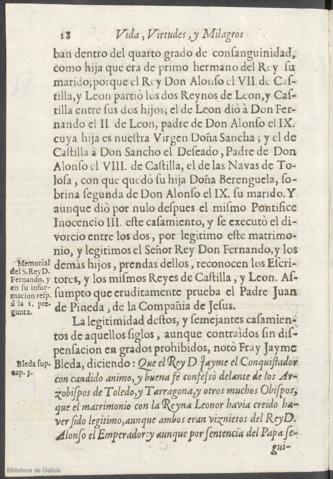 18 Vida, Virtudes, y Milagros
ban dentro del quarto grado de consanguinidad,
como hija que era de primo hermano del Rey su
marido; porque el Rey Don Alonso el VII. de Cas-
tilla, y Leon partió los dos Reynos de Leon, y Cas-
tilla entre sus dos hijos; el de Leon diò à Don Fer-
nando el II. de Leon, padre de Don Alonso el IX.
cuya hija es nuestra Virgen Doña Sancha; y el de
Castilla à Don Sancho el Deseado, Padre de Don
Alonso el VIII. de Castilla, el de las Navas de To-
losa, con que quedò su hija Doña Berenguela, so-
brina segunda de Don Alonso el IX. su marido. Y
aunque diò por nulo despues el mismo Pontifice
Inocencio III. este casamiento, y se executò el di-
vorcio entre los dos, por legitimo este matrimo-
nio, y legitimos el Señor Rey Don Fernando, y los
demàs hijos, prendas dellos, reconocen los Escri-
tores, y los mismos Reyes de Castilla, y Leon. As-
sumpto que eruditamente prueba el Padre Juan
de Pineda, de la Compañia de Jesus.
Memorial
del S. Rey D.
Fernando, y
en su infor-
macion resp.
à la 1. pre-
gunta.
La legitimidad destos, y semejantes casamien-
tos de aquellos siglos, aunque contraìdos sin dis-
pensacion en grados prohibidos, notò Fray Jayme
Bleda, diciendo: Que el Rey D. Jayme el Conquistador
con candido animo, y buena fé confessò delante de los Ar-
zobispos de Toledo, y Tarragona, y otros muchos Obispos,
que el matrimonio con la Reyna Leonor havia creido ha-
ver sido legitimo, aunque ambos eran viznietos del Rey D.
Alonso el Emperador: y aunque por sentencia del Papa se-
gui-
Bleda sup.
cap. 3.
Biblioteca de Galicia